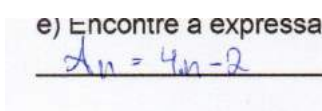 e) Encontre a expressa
An = 4.n-2